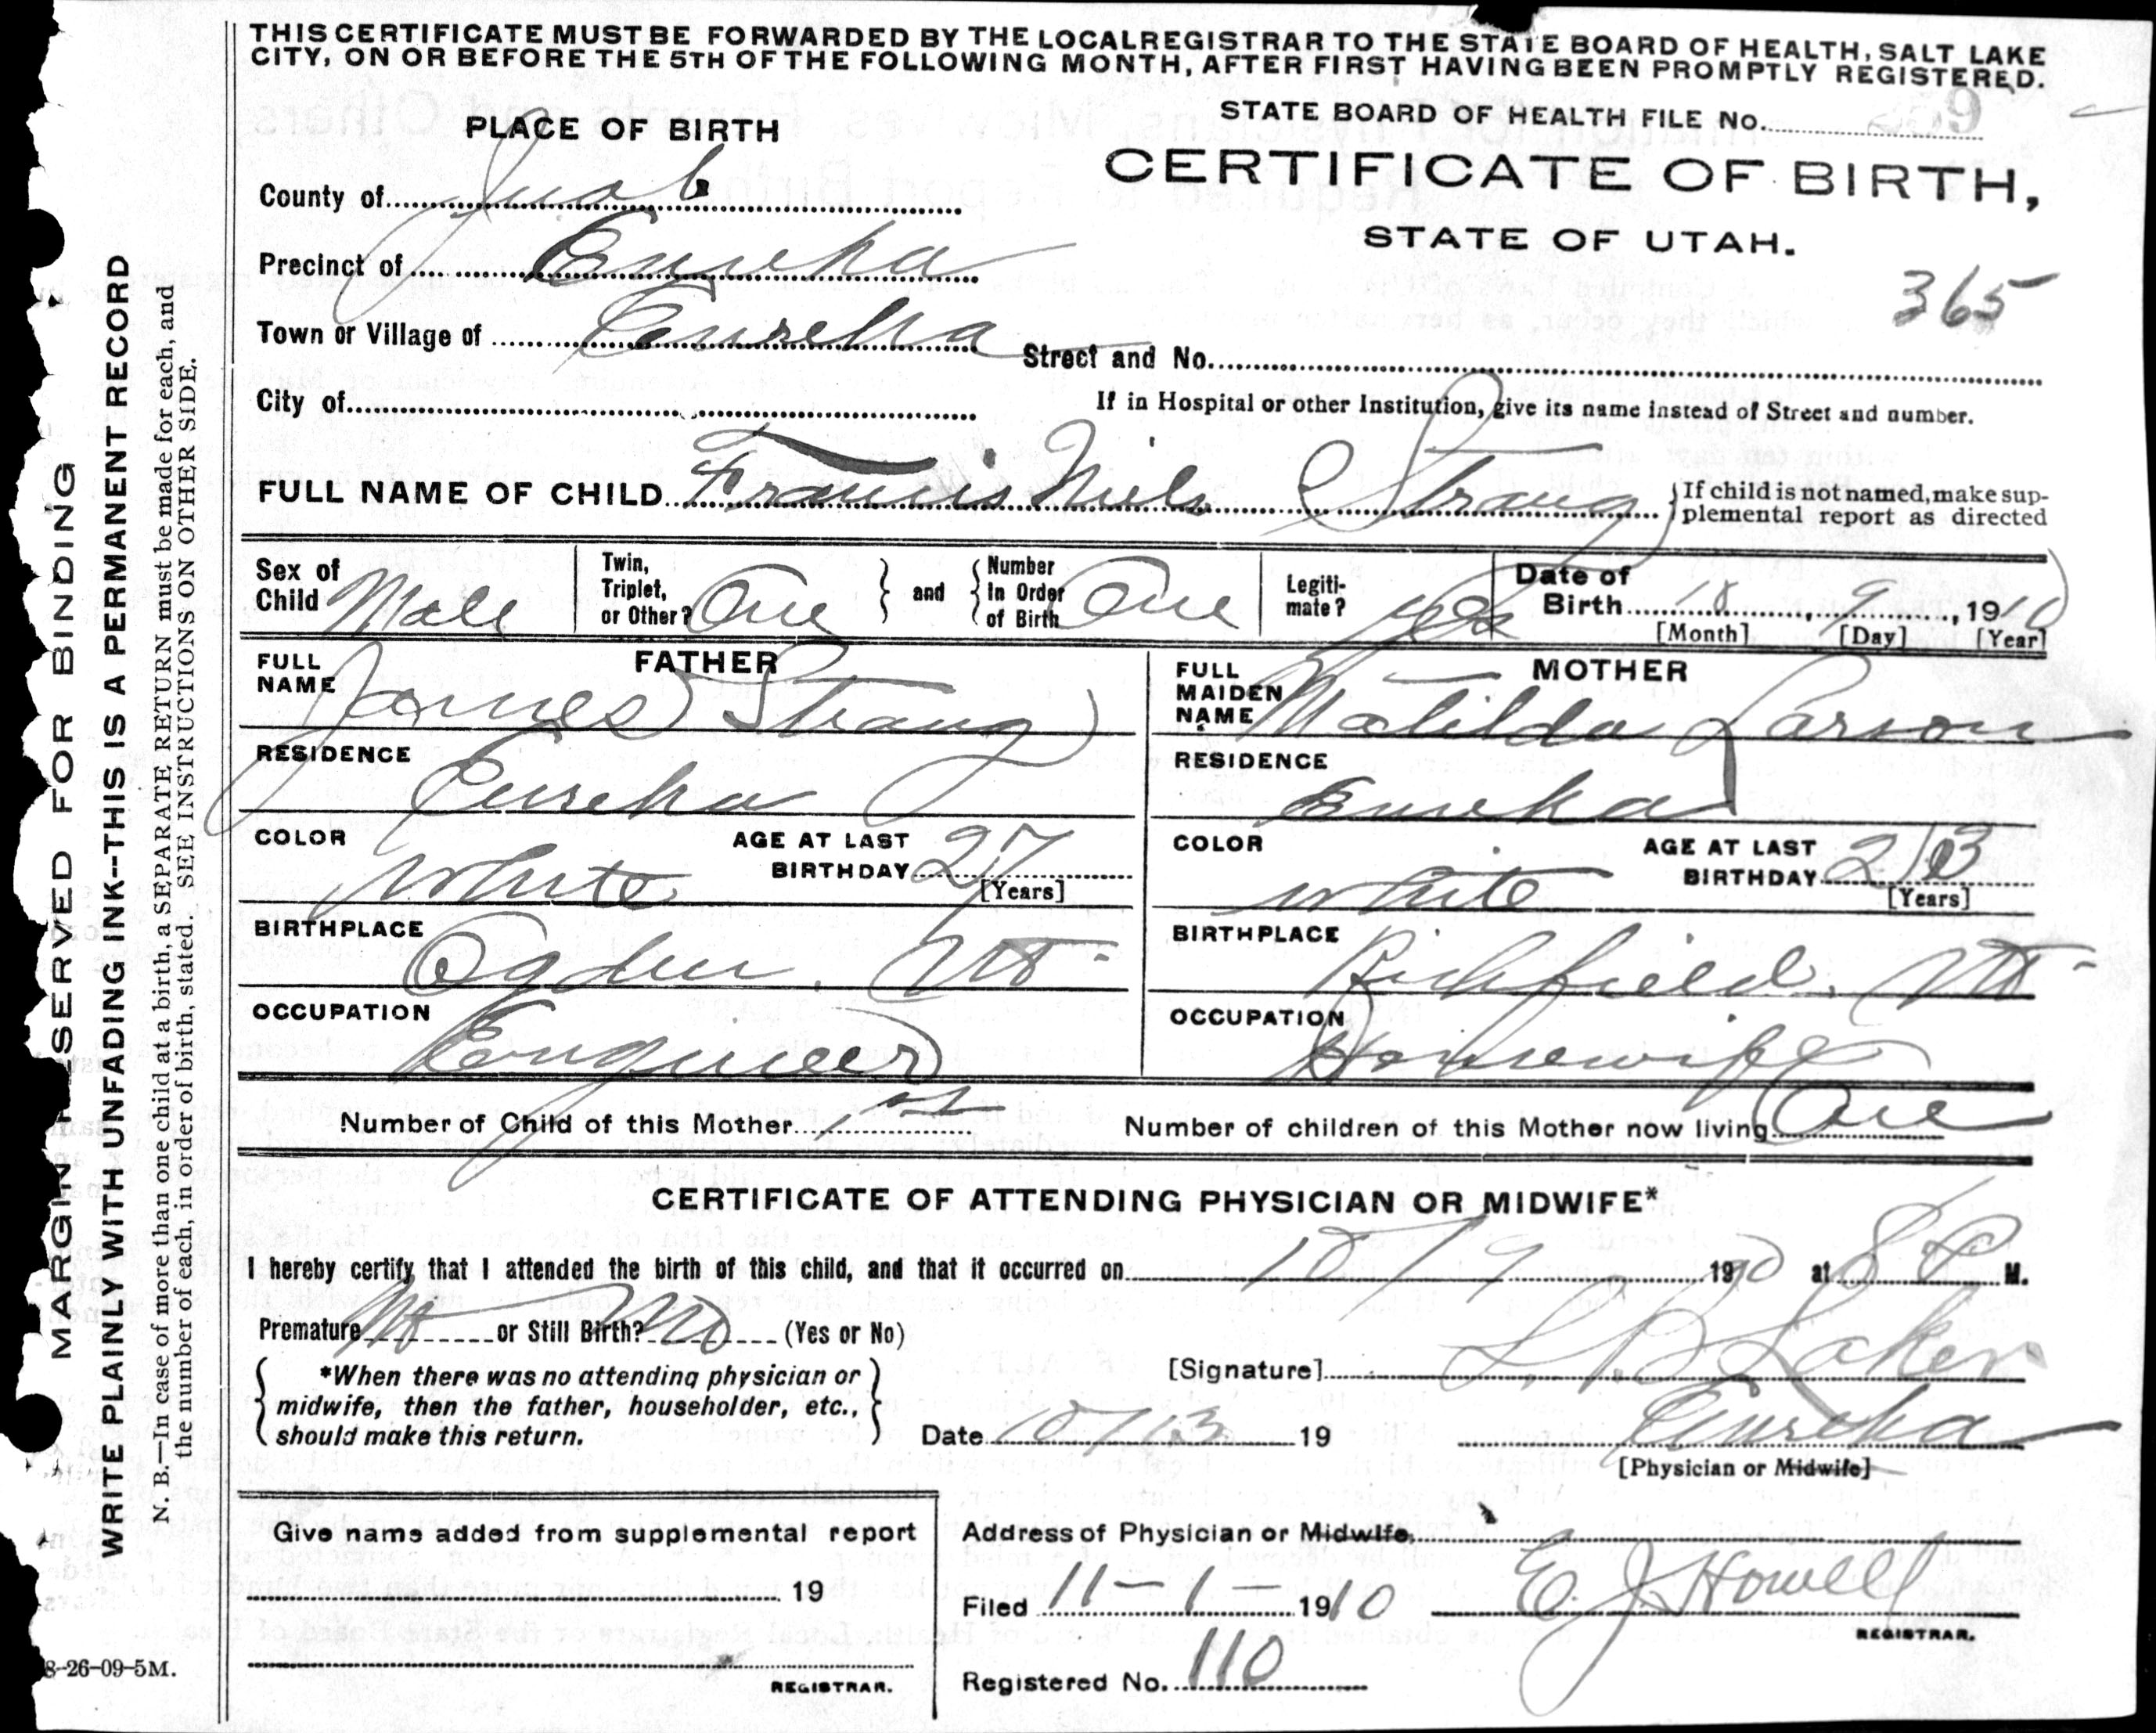 THIS CERTIFICATE MUST BE FORWARDED BY THE LOCAL REGISTRAR TO THE STATE BOARD OF HEALTH, SALT LAKE
CITY, ON OR BEFORE THE 5TH OF THE FOLLOWING MONTH, AFTER FIRST HAVING BEEN PROMPTLY REGISTERED.
STATE BOARD OF HEALTH FILE No. 9
PLACE OF BIRTH
CERTIFICATE OF BIRTH,
STATE OF UTAH.
County of Juab
Precinct of Eureka
365
Town or Village of Eureka
Street and No.
City of
If in Hospital or other Institution, give its name instead of Street and number.
FULL NAME OF CHILD Francis Niels Strang
If child is not named, make sup-
plemental report as directed
Sex of Child Male
Twin, Triplet, or Other? One
and
Number In Order of Birth One
Legiti-mate? yes
Date of Birth 10, 9, 1910
[Month] [Day] [Year]
FATHER
FULL NAME James Strang
RESIDENCE Eureka
COLOR White
AGE AT LAST BIRTHDAY 27
[Years]
BIRTHPLACE Ogden, Ut
OCCUPATION Engineer
MOTHER
FULL MAIDEN NAME Matilda Larson
RESIDENCE Eureka
COLOR White
AGE AT LAST BIRTHDAY
[Years]
BIRTHPLACE Richfield, Ut
OCCUPATION Housewife
Number of Child of this Mother 1st
Number of children of this Mother now living One
CERTIFICATE OF ATTENDING PHYSICIAN OR MIDWIFE*
I hereby certify that I attended the birth of this child, and that it occurred on 10/9 1910 at 8 P M.
Premature No or Still Birth? No (Yes or No)
*When there was no attending physician or
midwife, then the father, householder, etc.,
should make this return.
[Signature]
Date 10/13 19
Eureka
[Physician or Midwife]
Give name added from supplemental report
19
REGISTRAR.
Address of Physician or Midwife
Filed 11-1-1910 E. J. Howell
REGISTRAR.
Registered No. 110
MARGIN RESERVED FOR BINDING
WRITE PLAINLY WITH UNFADING INK--THIS IS A PERMANENT RECORD
N. B.—In case of more than one child at a birth, a SEPARATE RETURN must be made for each, and
the number of each, in order of birth, stated. SEE INSTRUCTIONS ON OTHER SIDE.
8-26-09-5M.